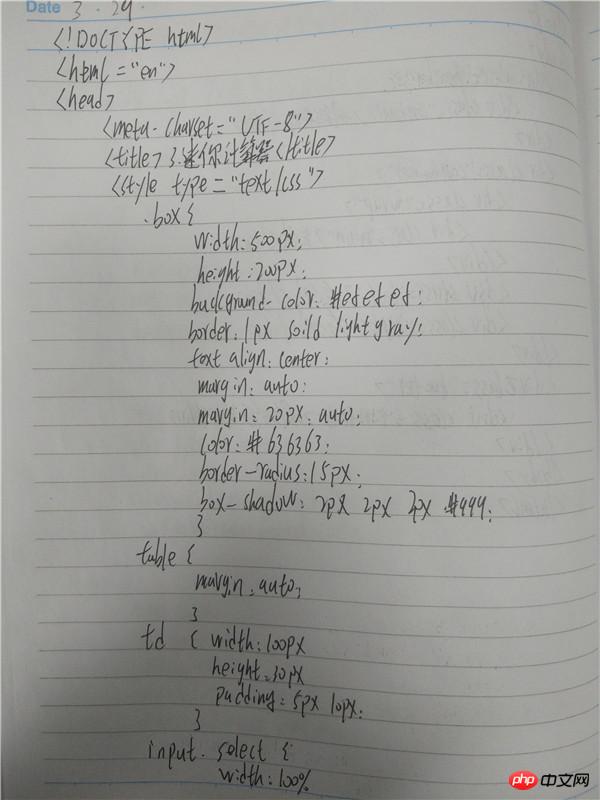 Date 3.29.
<!DOCTYPE html>
<html="en">
<head>
<meta charset="UTF-8">
<title>3.迷你计算器</title>
<style type="text/css">
.box{
width:500px;
height:200px;
background-color:#efefef;
border:1px soild lightgray;
text align:center;
margin:auto:
margin:20px auto;
color:#636363;
border-radius:15px;
box-shadow:2px 2px 2px #999;
}
table {
margin:auto;
}
td { width:100px
height:30px
padding:5px 10px;
}
input. select {
width:100%
php 中文网